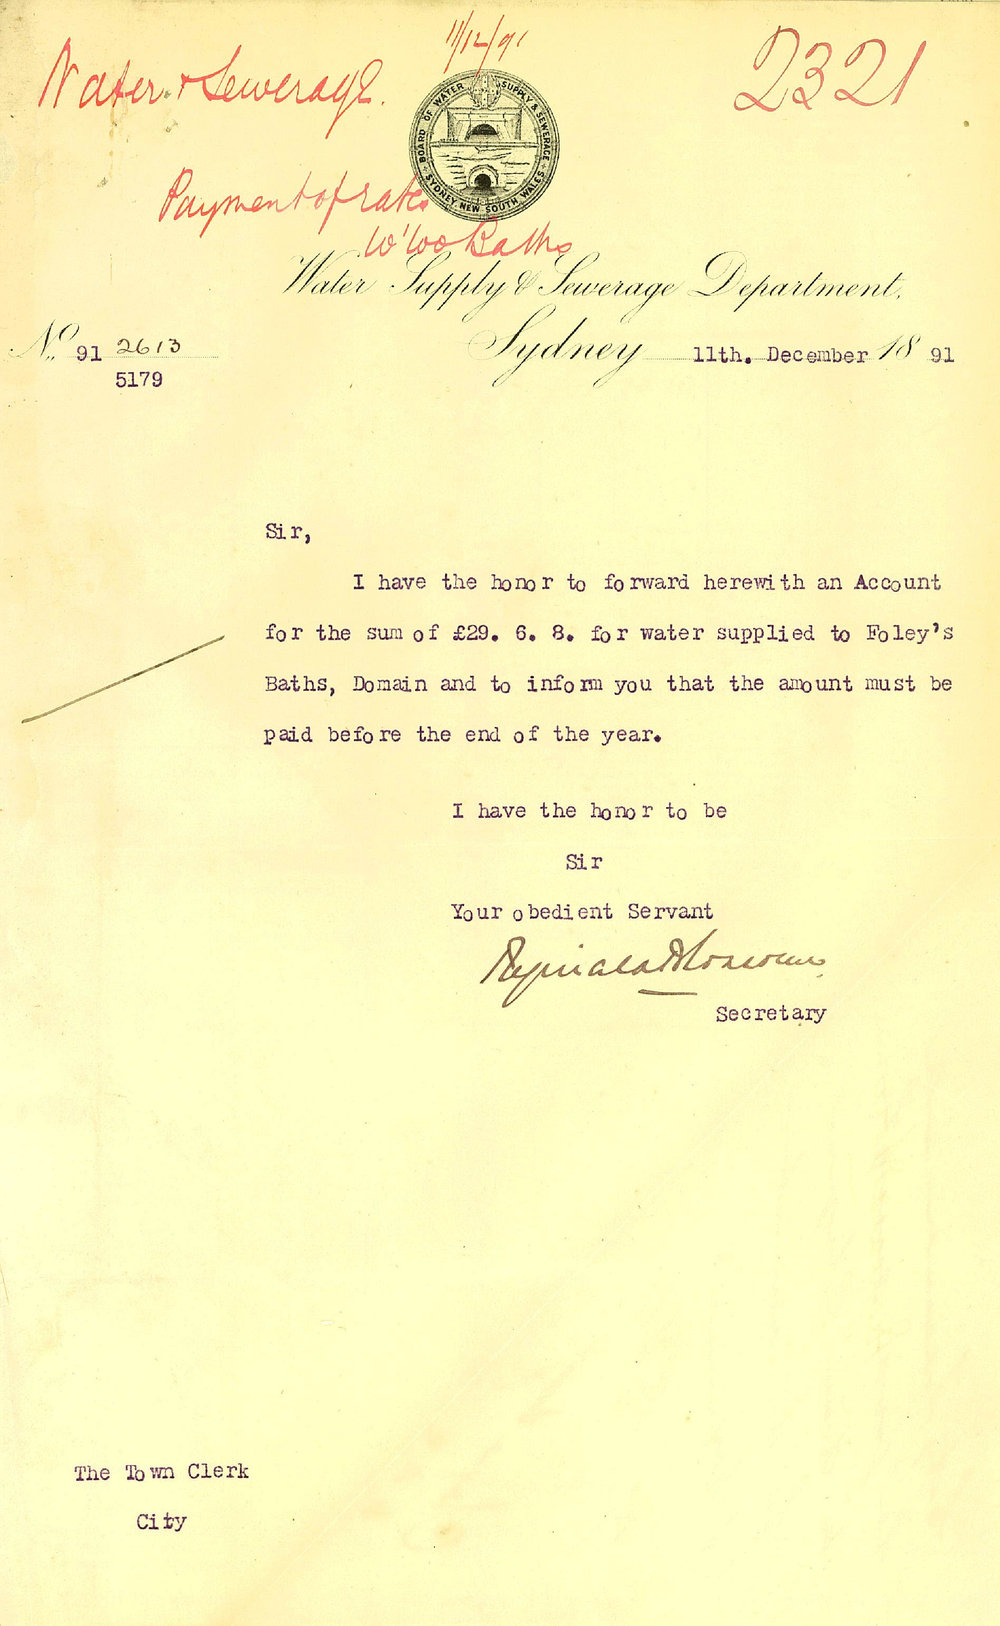 11/12/91
Water & Sewerage.
2321
BOARD OF WATER SUPPLY & SEWERAGE
SYDNEY, NEW SOUTH WALES
Payment of rates
W'loo Baths
Water Supply & Sewerage Department,
Sydney 11th. December 1891
No. 91 2613
5179
Sir,
I have the honor to forward herewith an Account
for the sum of £29. 6. 8. for water supplied to Foley's
Baths, Domain and to inform you that the amount must be
paid before the end of the year.
I have the honor to be
Sir
Your obedient Servant
Secretary
The Town Clerk
City